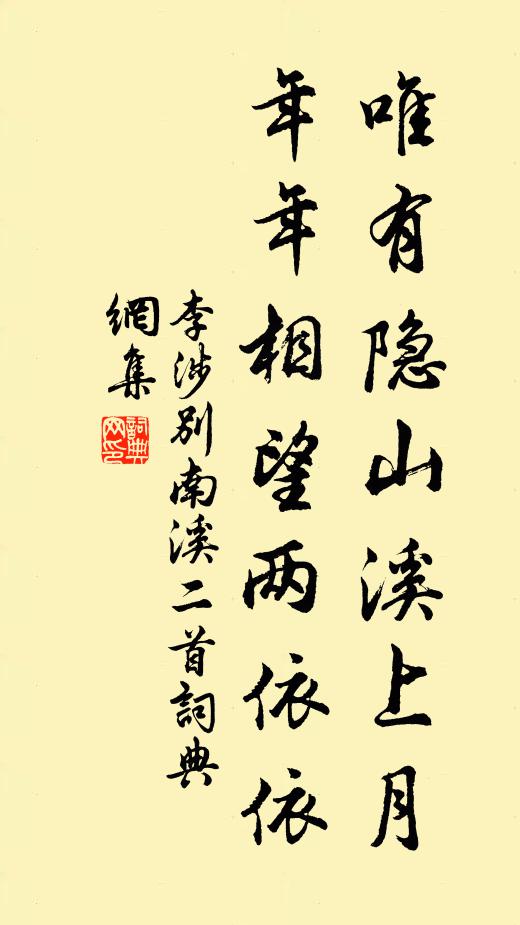 唯有隐山溪上月
年年相望两依依
李涉别南溪二首詞典
網集
詞典網印